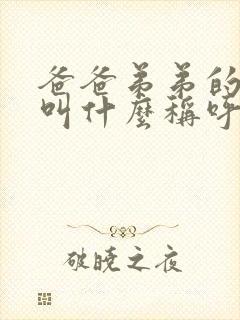 爸爸弟弟的
叫什麼稱呼
破曉之夜